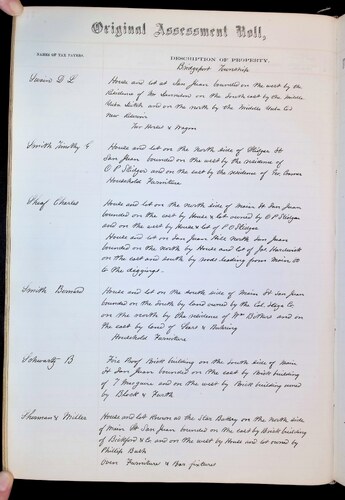 Original Assessment Roll,
NAMES OF TAX PAYERS.
DESCRIPTION OF PROPERTY.
Bridgeport Township
Swain D L
House and lot at San Juan bounded on the west by the
residence of Mr on the South east by the Middle
Yuba Ditch and on the north by the Middle Yuba Co
new Reservoir
Two Horses & Wagon
Smith Timothy G
House and lot on the North side of Flidger St
San Juan bounded on the west by the residence of
O P Stidger and on the east by the residence of
Household Furniture
Sheaf Charles
House and lot on the north side of main St San Juan
bounded on the east by House & lot owned by O P Stidger
and on the west by House & lot of P O Stidger
House and lot on San Juan Hill North San Juan
bounded on the north by House and lot of Jas. Hardwick
on the east and south by roads leading from Main St
to the diggings.
Smith Bernard
House and lot on the south side of Main St San Juan
bounded on the South by land owned by the
on the north by the residence of Wm Bothers and on
the east by land of Sears &
Household Furniture
Schwartz B
Fire Proof Brick building on the South side of Main
St San Juan bounded on the east by Brick building
of T and on the west by Brick building owned
by Block & Furth
Sherman & Miller
House and lot known as the Star Bakery on the North side
of Main St San Juan bounded on the east by Brick building
of Bickford & Co and on the west by House and lot owned by
Phillip
Oven Furniture & Bar fixtures